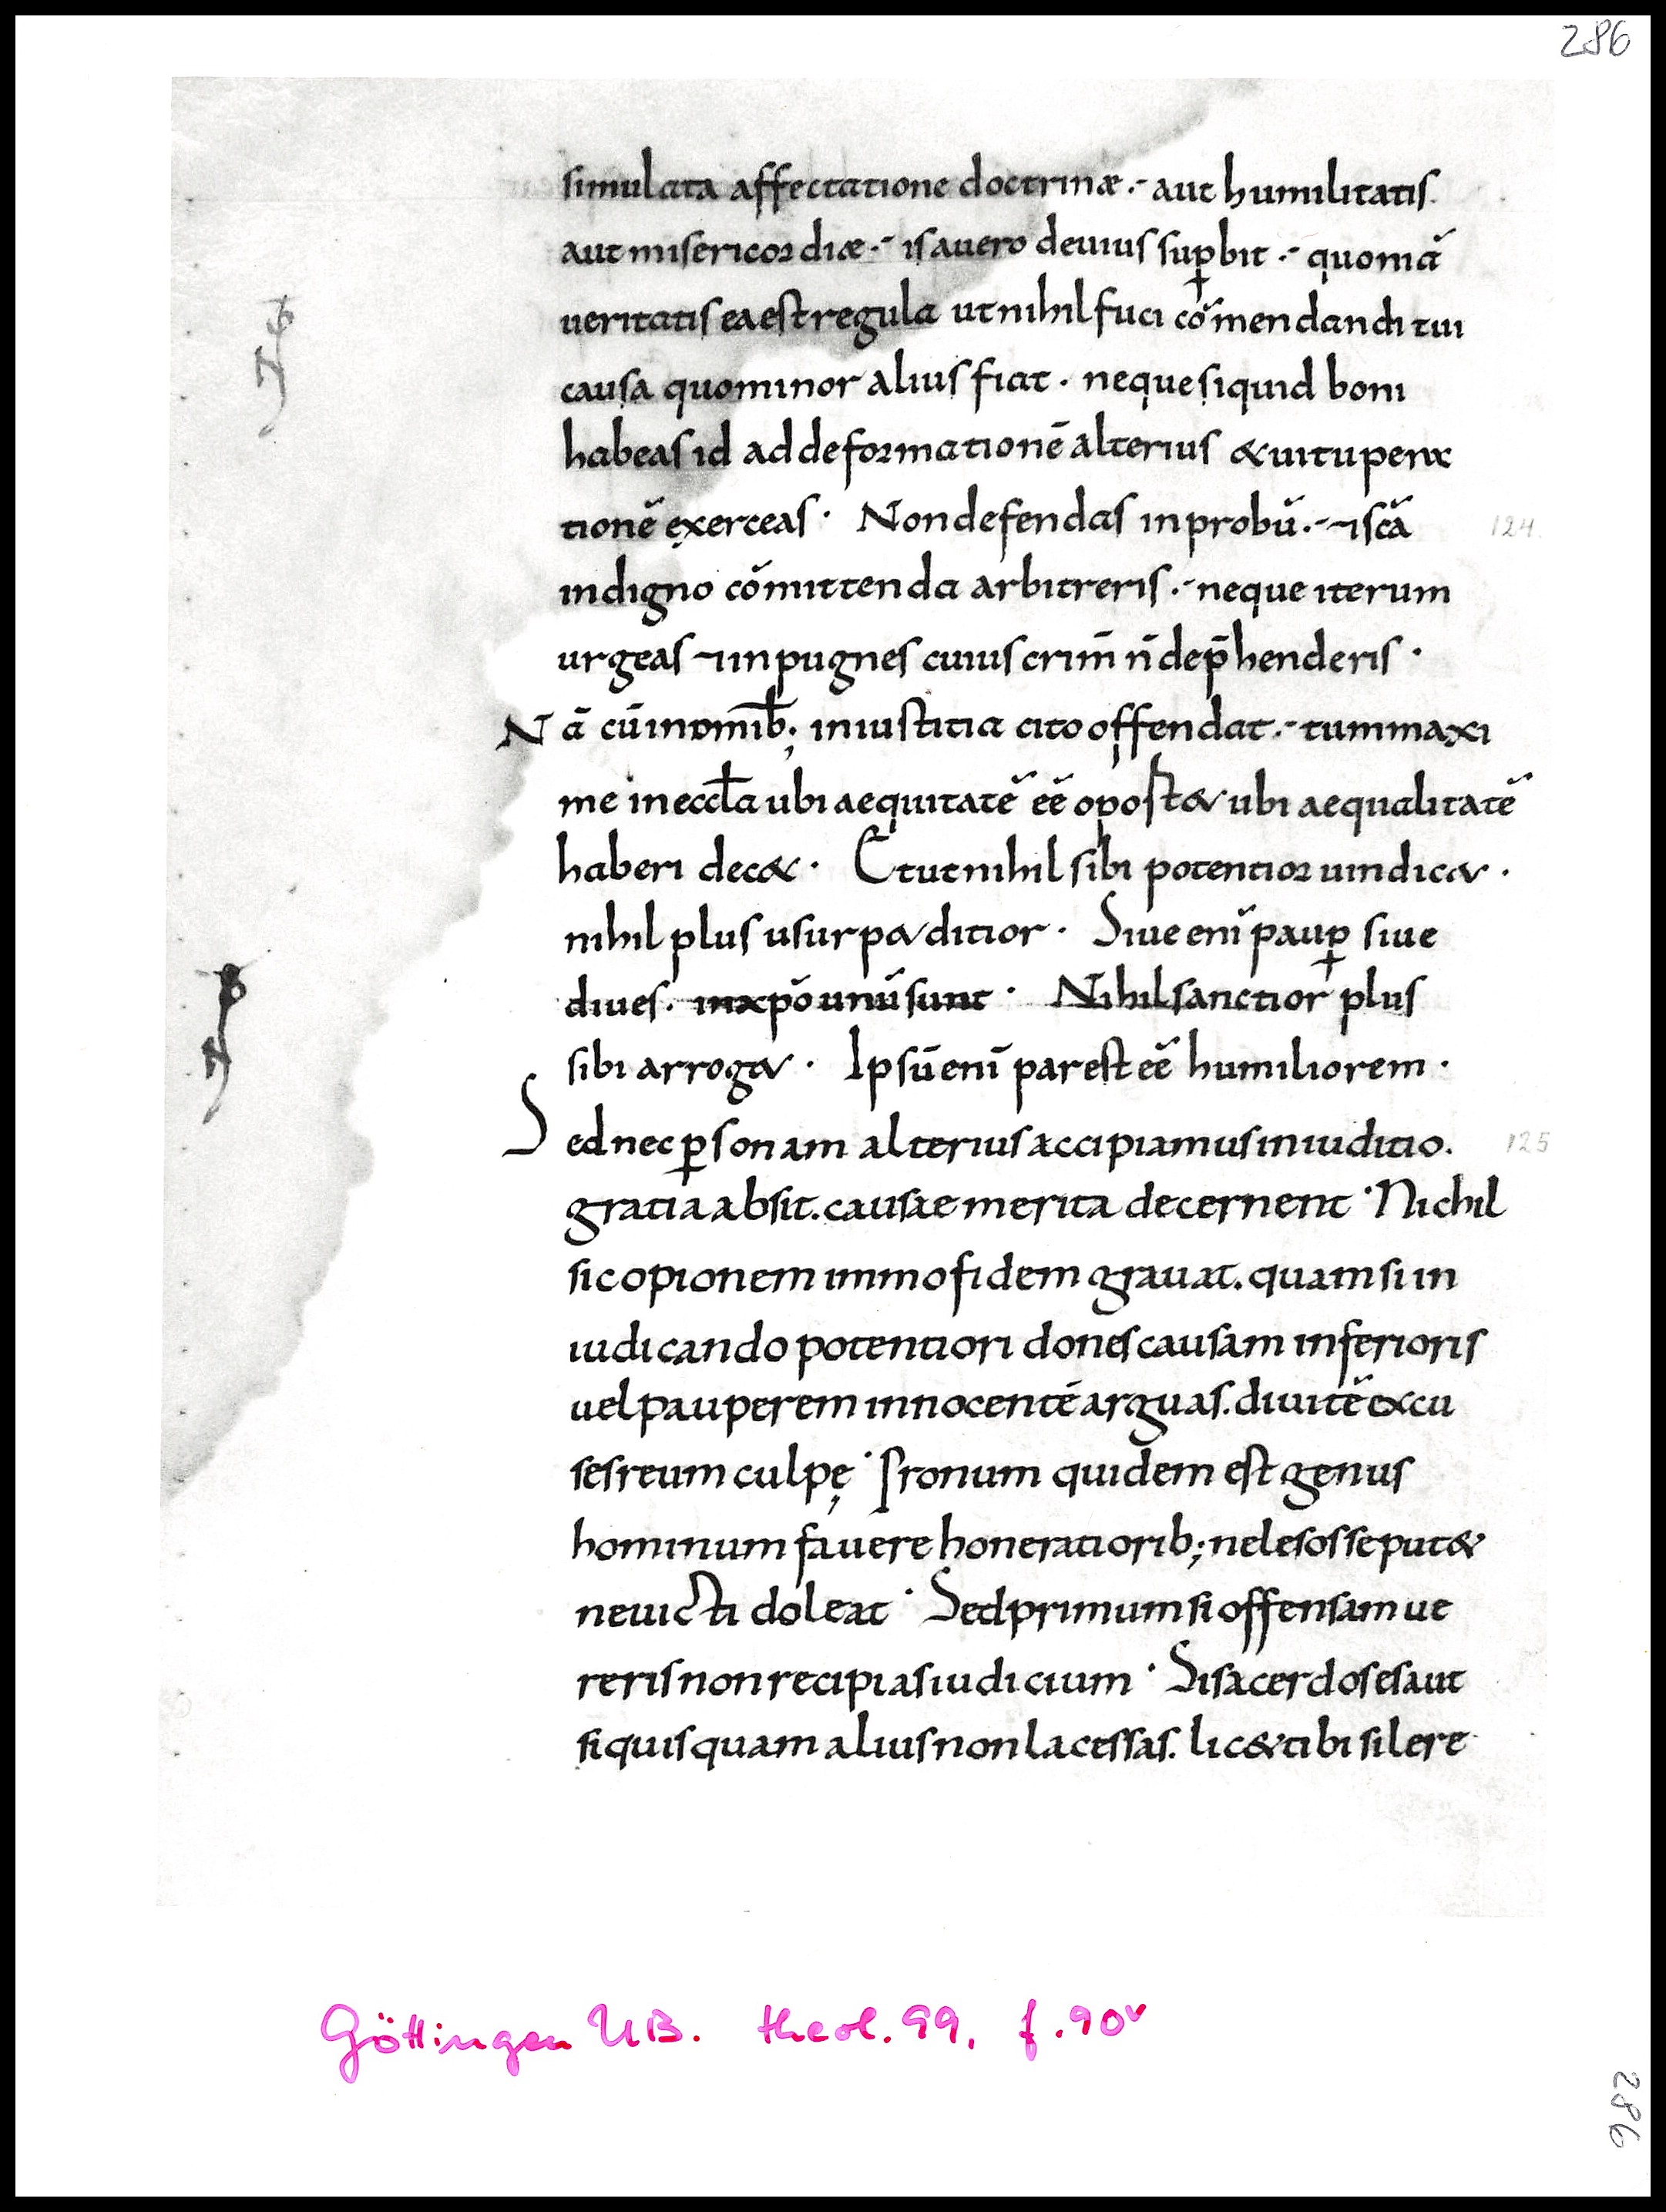 286
simulata affectatione doctrinæ.- aut humilitatis.
aut misericordiæ.- is a uero deuius sup̱bit.- quoniā
ueritatis ea est regula ut nihil fuci cōmendandi tui
causa quo minor alius fiat. neque siquid boni
habeas id ad deformationē alterius & uitupera
tionē exerceas. Non defendas inprobū.- ⁊ scā
indigno cōmittenda arbitreris.- neque iterum
urgeas ⁊ inpugnes cuius crim̄ n̄ dep̄henderis.
Nā cū in omīb; iniustitia cito offendat.- tum maxi
me in eccƚa ubi aequitatē eē oport& ubi aequalitatē
haberi dec&. Et ut nihil sibi potentior uindic&.
nihil plus usurp& ditior. Siue enī paup̱ siue
diues. in xpō unū sunt. Nihil sanctior plus
sibi arrog&. Ipsū enī par est eē humiliorem.
Sed nec p̱sonam alterius accipiamus in iuditio.
gratia absit. causae merita decernent. Nichil
sic opionem immo fidem grauat. quam si in
iudicando potentiori dones causam inferioris
uel pauperem innocentē arguas. diuitē excu
ses reum culpę. Pronum quidem est genus
hominum fauere honeratiorib; ne lesos se put&
ne uicti doleat. Sed primum si offensam ue
reris non recipias iudicium. Si sacerdos es aut
si quisquam alius non lacessas. lic& tibi silere
124
125
Göttingen UB. theol. 99, f. 90v
286